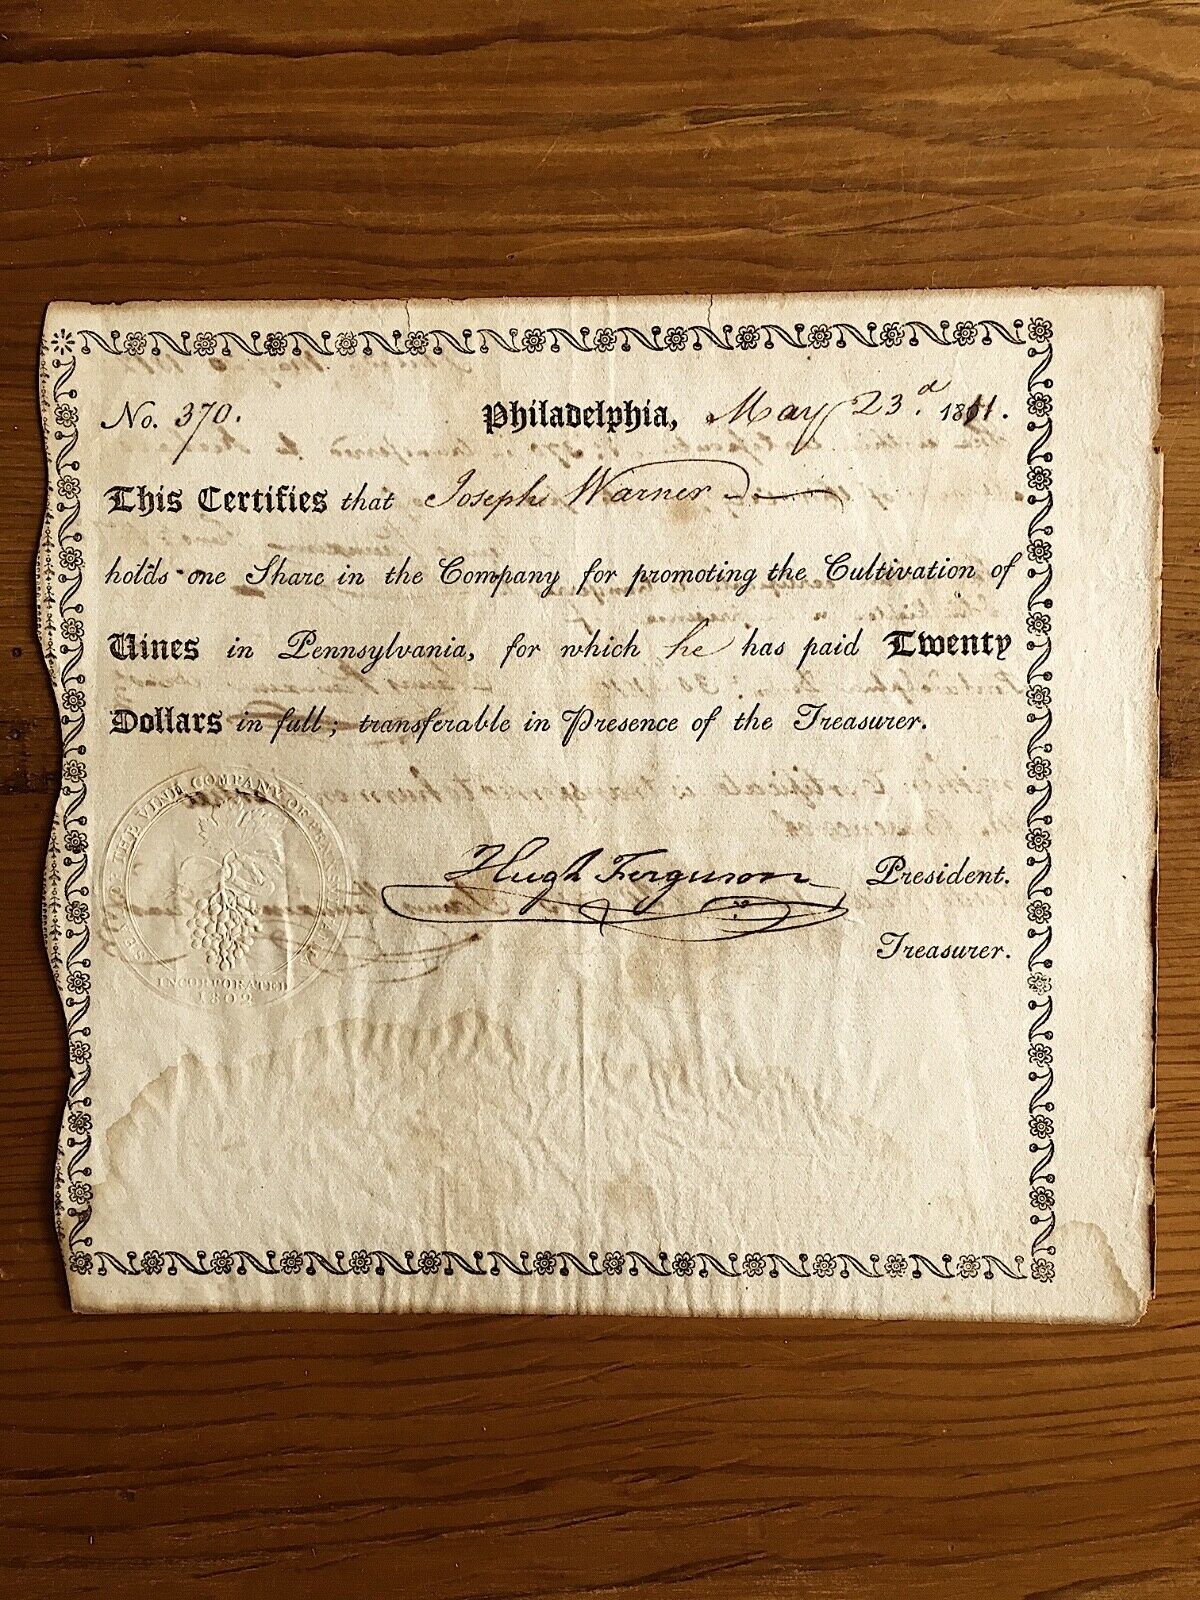 No. 370. Philadelphia, May 23.d 1811.
This Certifies that Joseph Warner
holds one Share in the Company for promoting the Cultivation of
Vines in Pennsylvania, for which he has paid Twenty
Dollars in full; transferable in Presence of the Treasurer.
THE VINE COMPANY OF
INCORPORATED
1802
Hugh Ferguson President.
Treasurer.